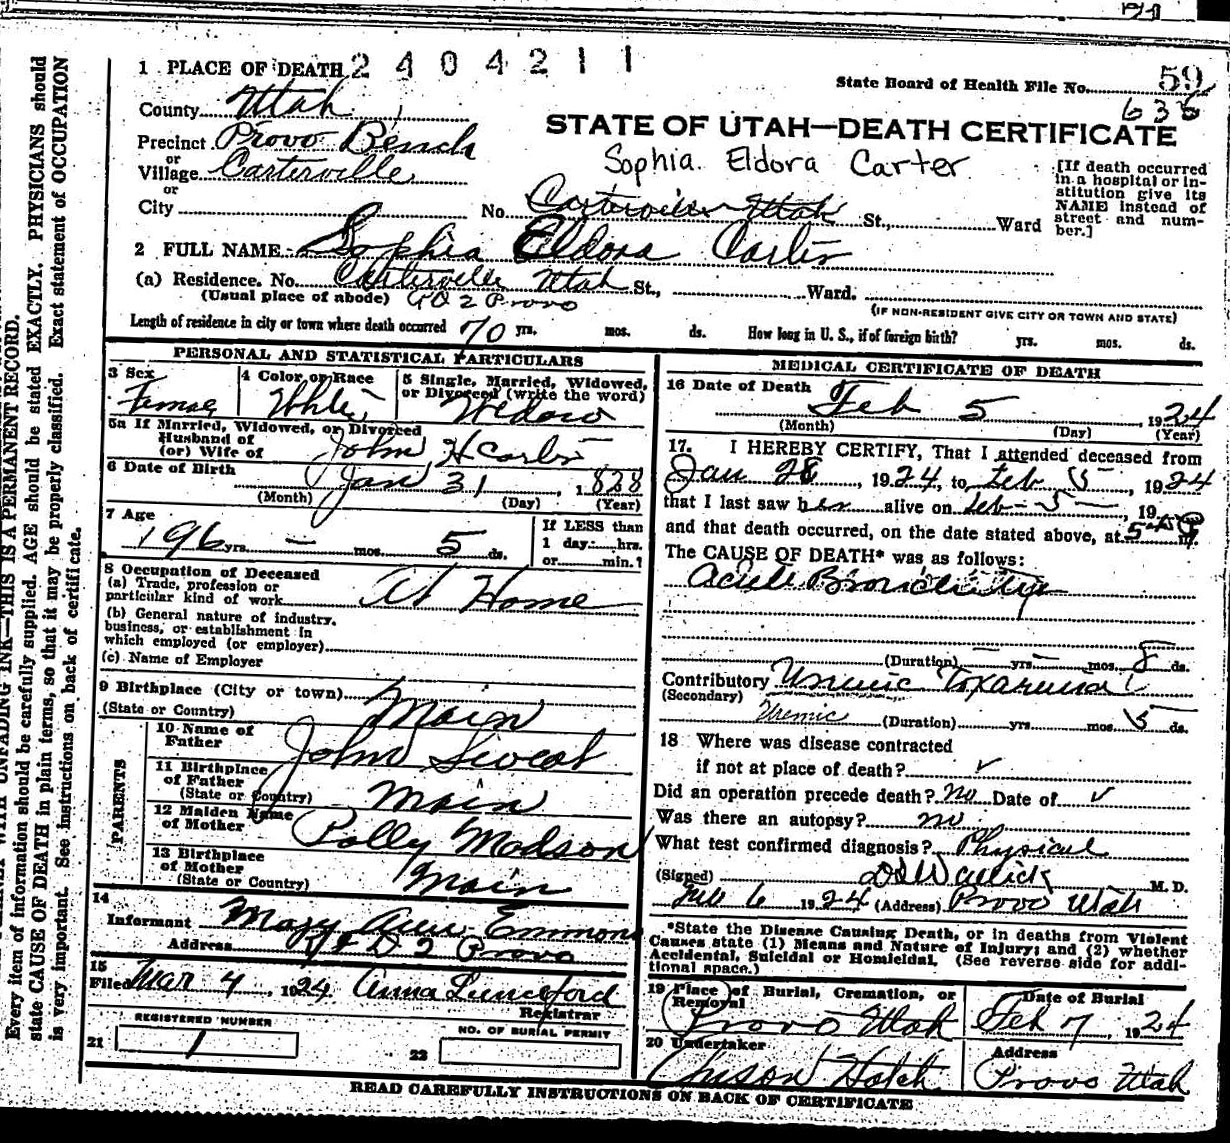 1 PLACE OF DEATH 2404211
State Board of Health File No. 59
636
County Utah
STATE OF UTAH—DEATH CERTIFICATE
Precinct Provo Bench
Sophia Eldora Carter
or
Village Carterville
or
City
No. Carterville Utah St., Ward
[If death occurred
in a hospital or in-
stitution give its
NAME instead of
street and num-
ber.]
2 FULL NAME Sophia Eldora Carter
(a) Residence. No. Carterville Utah St., Ward.
(Usual place of abode) 2 Provo
(IF NON-RESIDENT GIVE CITY OR TOWN AND STATE)
Length of residence in city or town where death occurred 70 yrs. mos. ds. How long in U. S., if of foreign birth? yrs. mos. ds.
PERSONAL AND STATISTICAL PARTICULARS
3 Sex
4 Color or Race
5 Single, Married, Widowed,
or Divorced (write the word)
Female White Widow
5a If Married, Widowed, or Divorced
Husband of
(or) Wife of John H Carter
6 Date of Birth Jan 31, 1828
(Month) (Day) (Year)
7 Age
196 yrs. – mos. 5 ds.
If LESS than
1 day: hrs.
or min.?
8 Occupation of Deceased
(a) Trade, profession or
particular kind of work At Home
(b) General nature of industry.
business, or establishment in
which employed (or employer)
(c) Name of Employer
9 Birthplace (City or town)
(State or Country) Main
PARENTS
10 Name of
Father John Sweat
11 Birthplace
of Father
(State or Country) Main
12 Maiden Name
of Mother Polly Modson
13 Birthplace
of Mother
(State or Country) Main
14
Informant Mary Ann Emmons
Address R F D 2 Provo
15
Filed Mar 4, 1924 Anna Lunceford
Registrar
REGISTERED NUMBER
21 1
NO. OF BURIAL PERMIT
22
MEDICAL CERTIFICATE OF DEATH
16 Date of Death
Feb 5, 1924
(Month) (Day) (Year)
17. I HEREBY CERTIFY, That I attended deceased from
Jan 28, 1924, to Feb 5, 1924
that I last saw her alive on Feb – 5 –, 19
and that death occurred, on the date stated above, at 5 m.
The CAUSE OF DEATH* was as follows:
Acute
(Duration) – yrs. – mos. 8 ds.
Contributory Uremic Toxaemia
(Secondary)
Uremic (Duration) yrs. mos. 5 ds.
18 Where was disease contracted
if not at place of death? ✓
Did an operation precede death? no Date of ✓
Was there an autopsy? no
What test confirmed diagnosis? Physical
(Signed) M. D.
Feb 6 1924 (Address) Provo Utah
*State the Disease Causing Death, or in deaths from Violent
Causes state (1) Means and Nature of Injury; and (2) whether
Accidental, Suicidal or Homicidal. (See reverse side for addi-
tional space.)
19 Place of Burial, Cremation, or
Removal
Provo Utah
Date of Burial
Feb 7, 1924
20 Undertaker
Hatch
Address
Provo Utah
READ CAREFULLY INSTRUCTIONS ON BACK OF CERTIFICATE
UNFADING INK—THIS IS A PERMANENT RECORD.
Every item of information should be carefully supplied. AGE should be stated EXACTLY. PHYSICIANS should
state CAUSE OF DEATH in plain terms, so that it may be properly classified. Exact statement of OCCUPATION
is very important. See instructions on back of certificate.